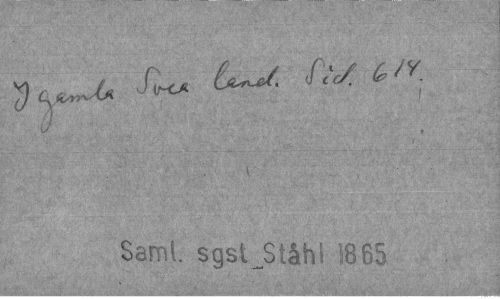 I gamla Svea land. Sid. 614.
Saml. sgst_Ståhl 1865